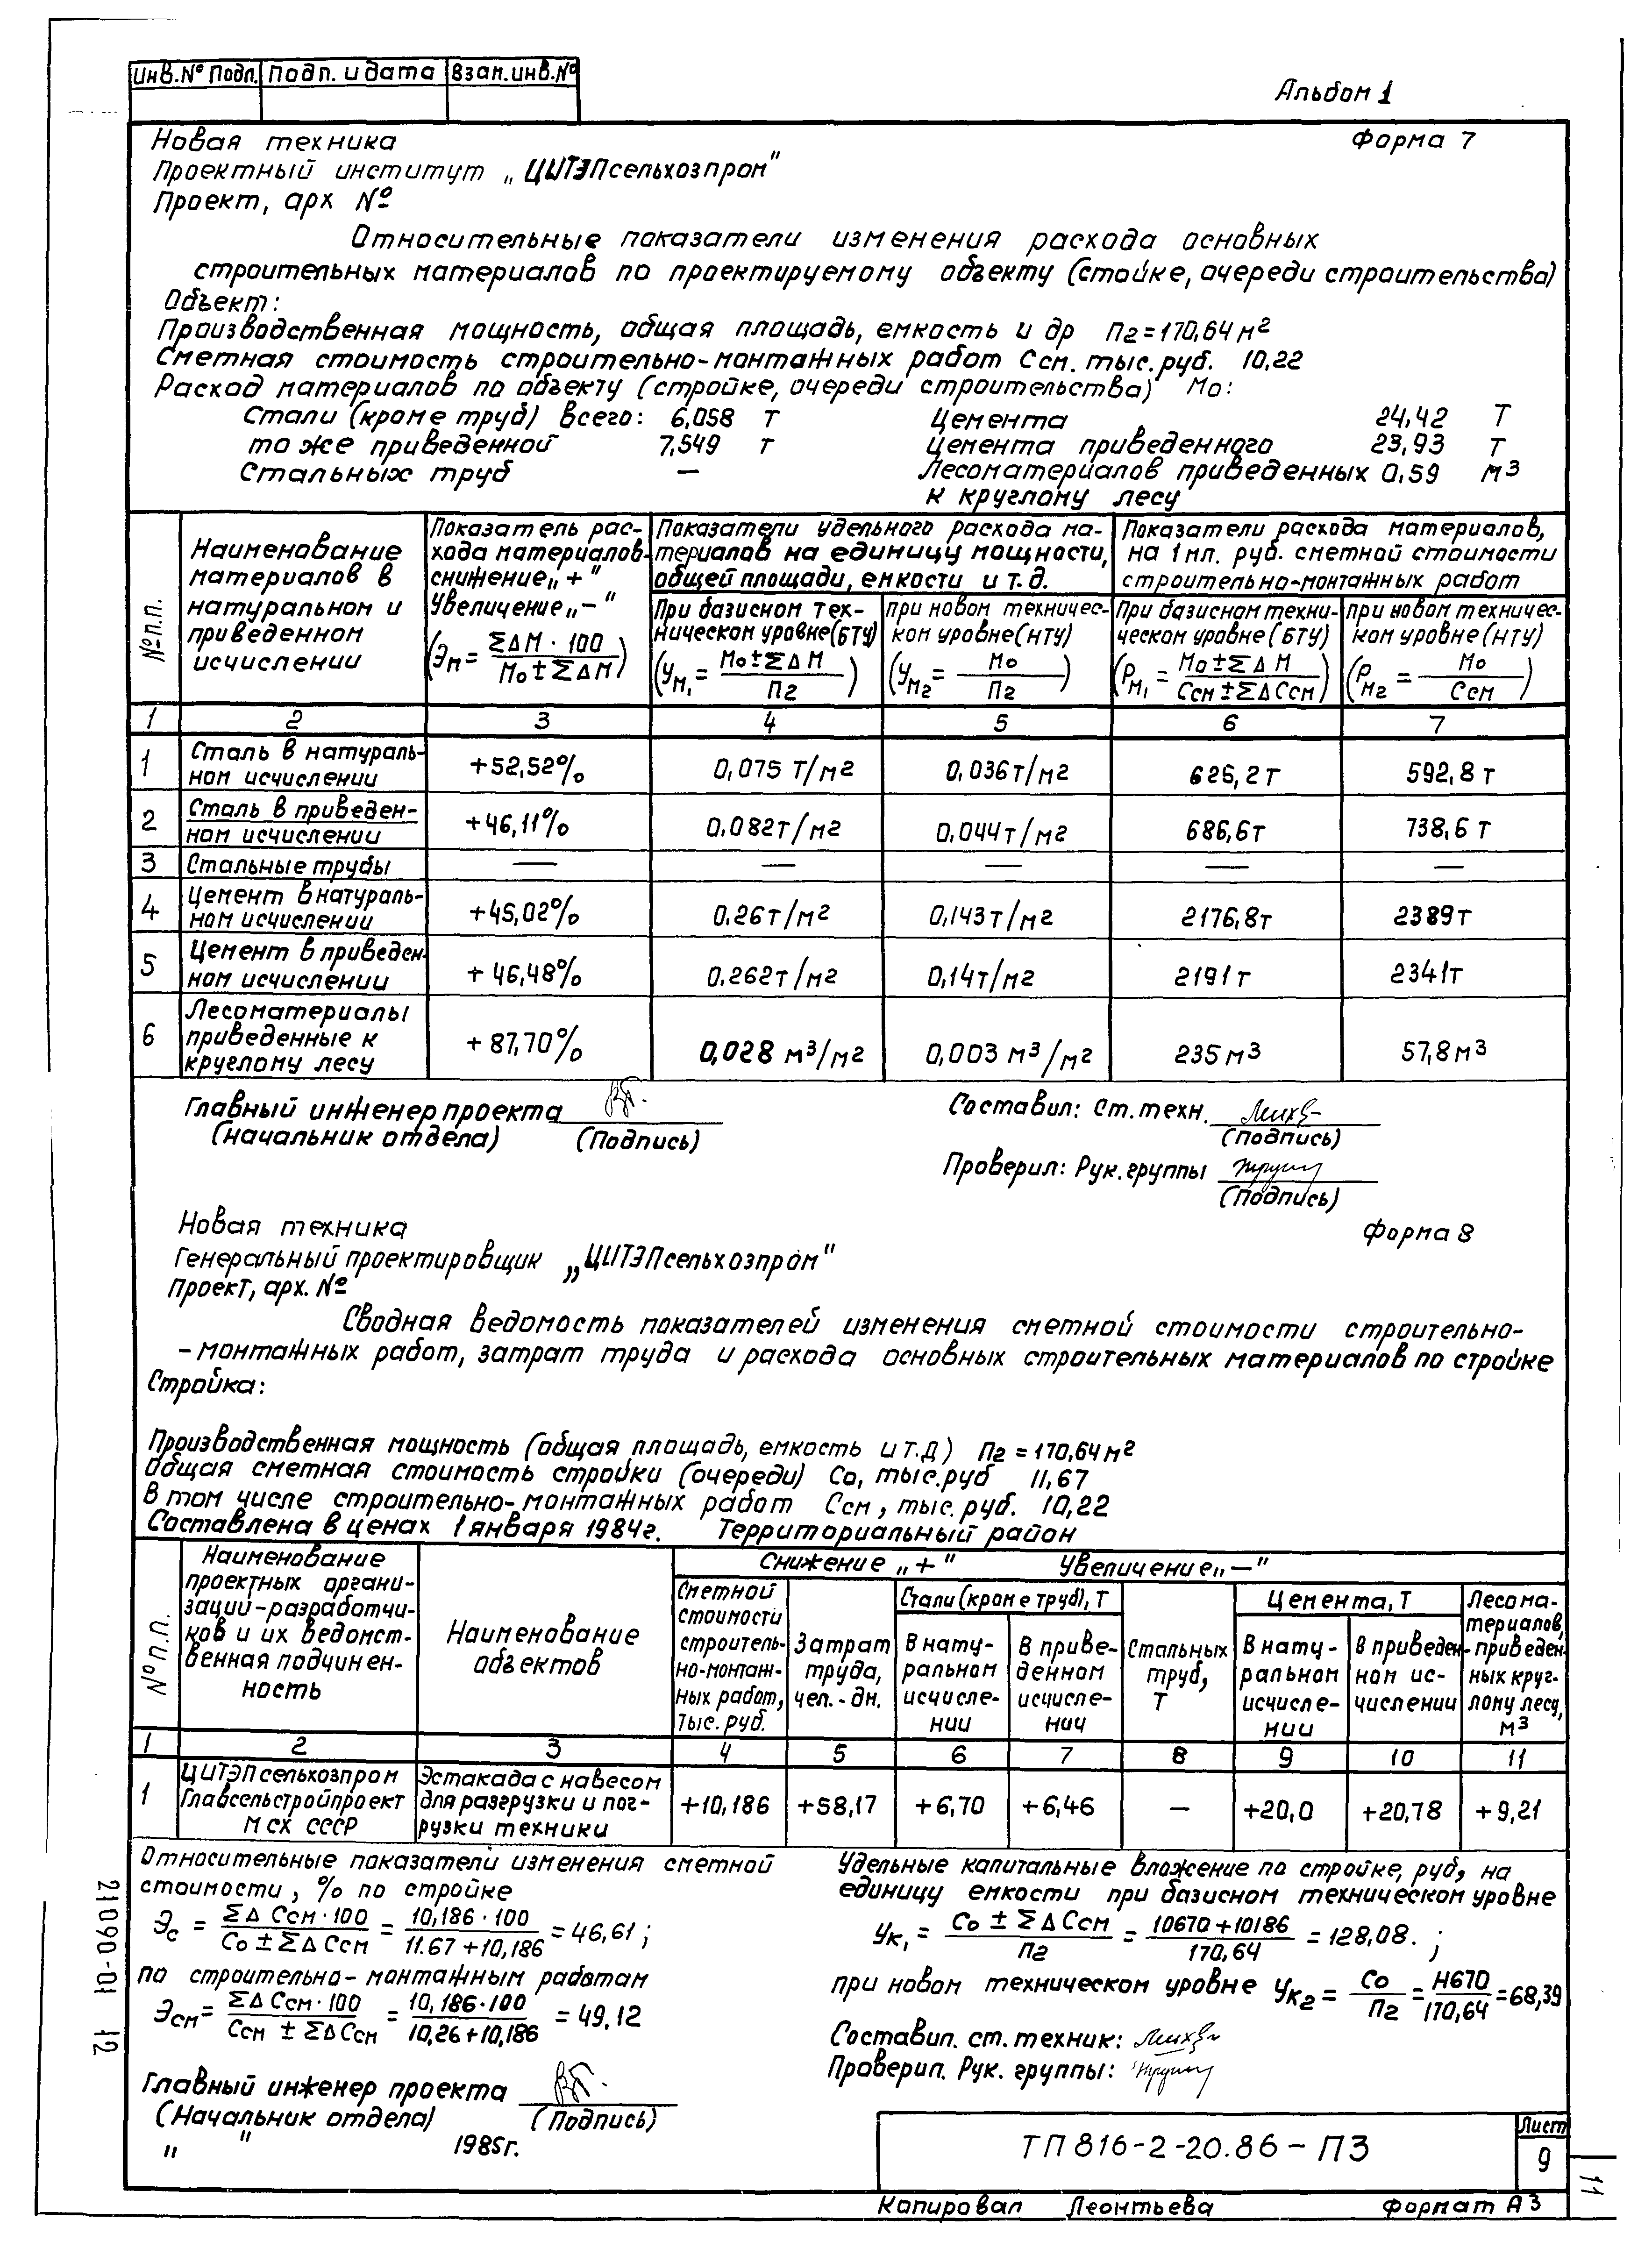 Инв.№ Подл. Подп. и дата Взам.инв.№
Альбом 1
Новая техника
Форма 7
Проектный институт „ЦИТЭПсельхозпром"
Проект, арх №
Относительные показатели изменения расхода основных
строительных материалов по проектируемому объекту (стойке, очереди строительства)
Объект:
Производственная мощность, общая площадь, емкость и др Пг=170,64 м2
Сметная стоимость строительно-монтажных работ Ссм. тыс. руб. 10,22
Расход материалов по объекту (стройке, очереди строительства) Мо:
Стали (кроме труб) всего: 6,058 т Цемента 24,42 т
то же приведенной 7,549 т Цемента приведенного 23,93 т
Стальных труб — Лесоматериалов приведенных 0,59 м3
к круглому лесу
№ п.п.
Наименование
материалов в
натуральном и
приведенном
исчислении
Показатель рас-
хода материалов-
снижение „+"
Увеличение „-"
(Эм = ΣΔМ · 100 / Мо ± ΣΔМ)
Показатели удельного расхода ма-
териалов на единицу мощности,
общей площади, емкости и т.д.
При базисном тех-
ническом уровне (БТУ)
(Ум1 = Мо ± ΣΔМ / Пг)
при новом техничес-
ком уровне (НТУ)
(Ум2 = Мо / Пг)
Показатели расхода материалов,
на 1 мл. руб. сметной стоимости
строительно-монтажных работ
При базисном техни-
ческом уровне (БТУ)
(Рм1 = Мо ± ΣΔ М / Ссм ± ΣΔ Ссм)
при новом техничес-
ком уровне (НТУ)
(Рм2 = Мо / Ссм)
1 2 3 4 5 6 7
1 Сталь в натураль-
ном исчислении +52,52% 0,075 Т/м2 0,036т/м2 625,2т 592,8т
2 Сталь в приведен-
ном исчислении +46,11% 0,082т/м2 0,044т/м2 686,6т 738,6 т
3 Стальные трубы — — — — —
4 Цемент в натураль-
ном исчислении +45,02% 0,26т/м2 0,143т/м2 2176,8т 2389т
5 Цемент в приведен-
ном исчислении +46,48% 0,262т/м2 0,14т/м2 2191т 2341т
6 Лесоматериалы
приведенные к
круглому лесу +87,70% 0,028 м3/м2 0,003 м3/м2 235м3 57,8м3
Главный инженер проекта
(начальник отдела) (Подпись)
Составил: Ст.техн.
(подпись)
Проверил: Рук.группы
(Подпись)
Новая техника
Форма 8
Генеральный проектировщик „ЦИТЭПсельхозпром"
Проект, арх. №
Сводная ведомость показателей изменения сметной стоимости строительно-
-монтажных работ, затрат труда и расхода основных строительных материалов по стройке
Стройка:
Производственная мощность (общая площадь, емкость и т.д) Пг = 170,64 м2
Общая сметная стоимость стройки (очереди) Со, тыс.руб 11,67
В том числе строительно-монтажных работ Ссм, тыс. руб. 10,22
Составлена в ценах 1 января 1984г. Территориальный район
№ п.п.
Наименование
проектных органи-
заций-разработчи-
ков и их ведомст-
венная подчинен-
ность
Наименование
объектов
Снижение „+" Увеличение „—"
Сметной
стоимости
строитель-
но-монтаж-
ных работ,
тыс. руб.
Затрат
труда,
чел.-дн.
Стали (кроме труб), т
В нату-
ральном
исчисле-
нии
В приве-
денном
исчисле-
нич
Стальных
труб,
Т
Цемента, Т
В нату-
ральном
исчисле-
нии
В приведен-
ном ис-
числении
Лесома-
териалов,
приведен-
ных круг-
лому лесу,
м3
1 2 3 4 5 6 7 8 9 10 11
1 ЦИТЭПсельхозпром
Главсельстройпроект
М сх СССР
Эстакада с навесом
для разгрузки и пог-
рузки техники
+10,186 +58,17 +6,70 +6,46 — +20,0 +20,78 +9,21
Относительные показатели изменения сметной
стоимости, % по стройке
Эс = ΣΔ Ссм · 100 / Со ± ΣΔ Ссм = 10,186 · 100 / 11.67 + 10,186 = 46,61;
по строительно-монтажным работам
Эсм = ΣΔ Ссм · 100 / Ссм ± ΣΔ Ссм = 10,186 · 100 / 10,26 + 10,186 = 49,12
Удельные капитальные вложение по стройке, руб, на
единицу емкости при базисном техническом уровне
Ук1 = Со ± ΣΔ Ссм / Пг = 10670 + 10186 / 170,64 = 128,08. ;
при новом техническом уровне Ук2 = Со / Пг = Н670 / 170,64 = 68,39
Составил. ст. техник:
Проверил. Рук. группы:
Главный инженер проекта
(Начальник отдела) (Подпись)
„ " 1985г.
ТП 816-2-20.86 - ПЗ
Лист
9
Копировал Леонтьева Формат А3
21090-01 12
11